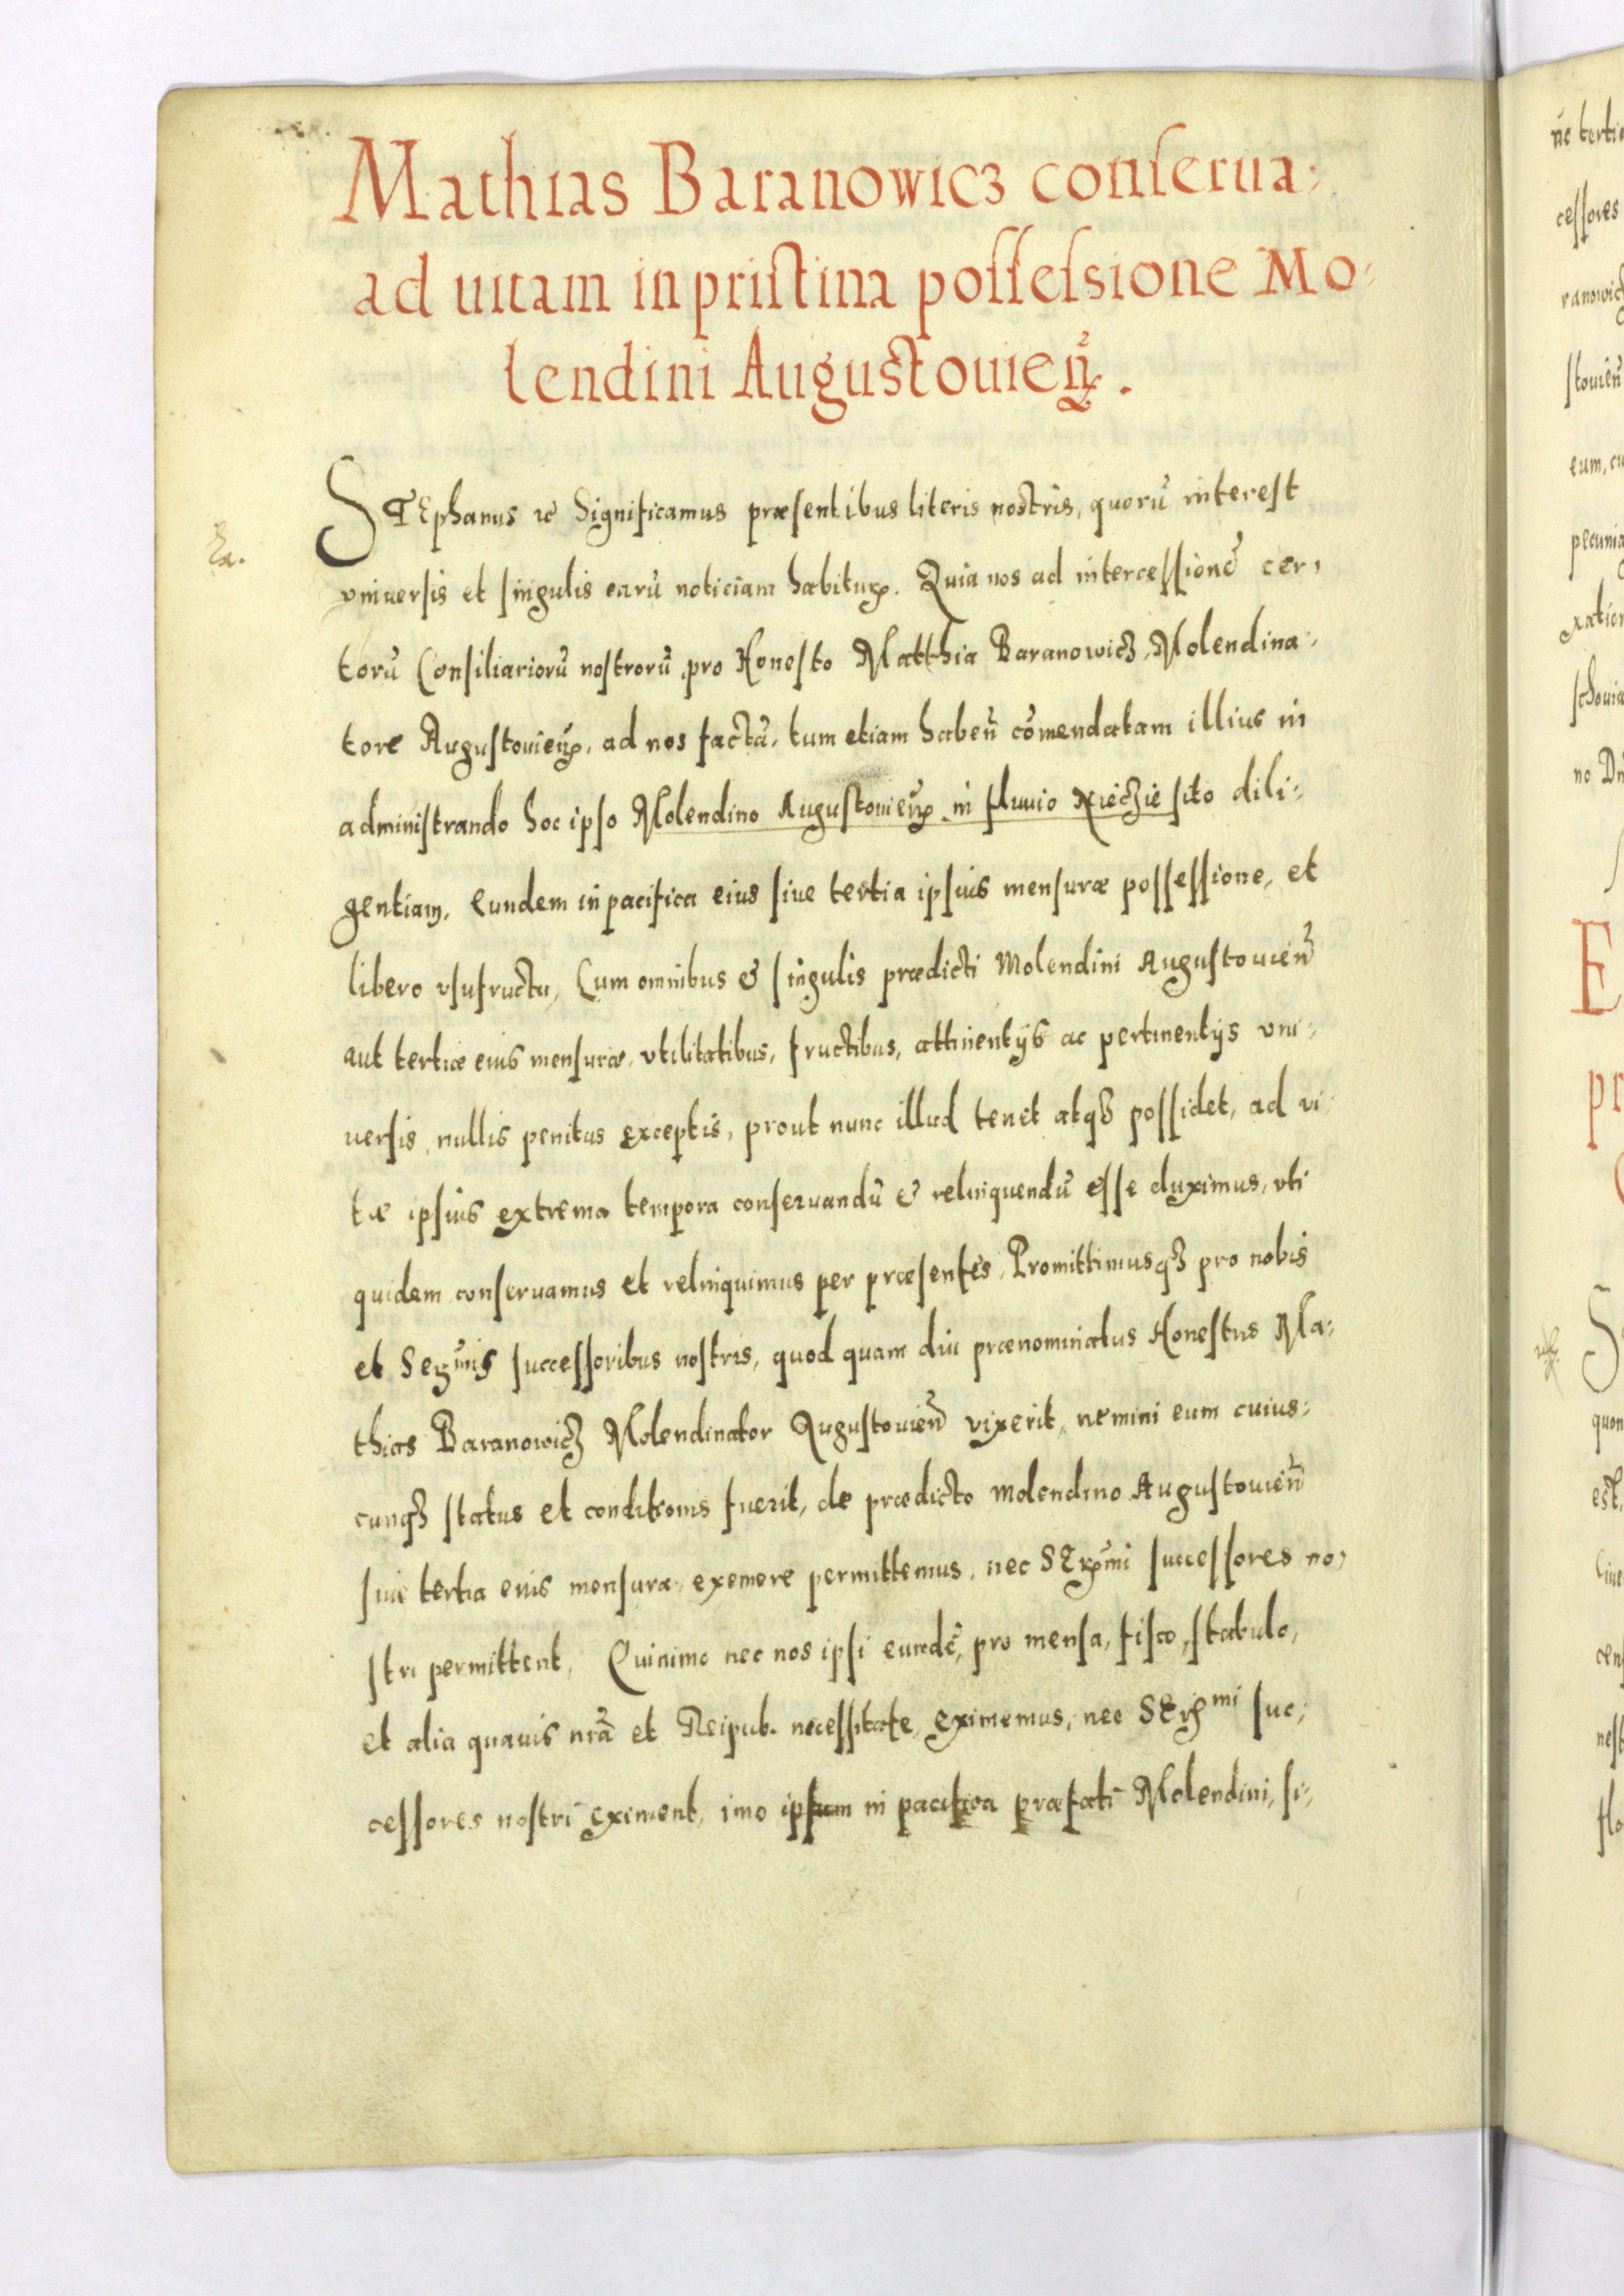 Mathias Baranowicz conserua:
ad uitam in pristina possessione Mo:
lendini Augustouien̄.
STEphanus etc Significamus præsentibus literis nostris, quorū interest
vniuersis et singulis earū noticiam habituꝝ. Quia nos ad intercessionē cer,
torū Consiliariorū nostrorū, pro Honesto Matthia Baranowicz, Molendina:
tore Augustouien̄, ad nos factā, tum etiam haben̄ cōmendatam illius in
administrando hoc ipso Molendino Augustouien̄ in fluuio Niecziesito dili:
gentiam, eundem in pacifica eius siue tertia ipsius mensuræ possessione, et
libero vsufructu, Cum omnibus & singulis prædicti Molendini Augustouien̄
aut tertiæ eius mensuræ, vtilitatibus, fructibus, attinentijs ac pertinentijs vni:
uersis, nullis penitus exceptis, prout nunc illud tenet atqꝫ possidet, ad vi:
tæ ipsius extrema tempora conseruandū & relinquendū esse duximus, vti
quidem conseruamus et relinquimus per præsentes, Promittimusqꝫ pro nobis
et Serᵐⁱˢ successoribus nostris, quod quam diu prænominatus Honestus Ma:
thias Baranowicz Molendinator Augustouien̄ vixerit, nemini eum cuius:
cunqꝫ status et conditionis fuerit, de prædicto Molendino Augustouien̄
siue tertia eius mensura, exemere permittemus, nec SERᵐⁱ successores no,
stri permittent, Quinimo nec nos ipsi eundē, pro mensa, fisco, stabulo,
et alia quauis nrā et Reipub. necessitate, eximemus, nec SERᵐⁱ suc:
cessores nostri eximent, imo ipsum in pacifica præfati Molendini, si:
ue tertia
cessores
ranowicz
stouien̄
eum, cu
pecunia
xation
schouia
E
pr
quon
est,
cens